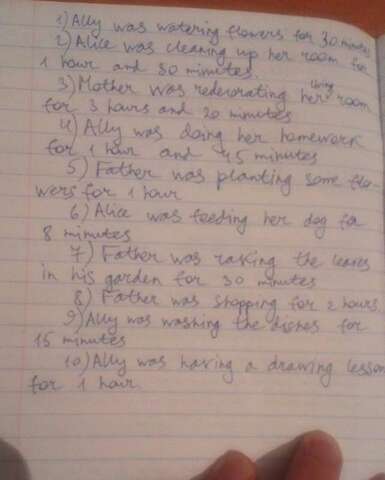 1) Ally was watering flowers for 30 minutes
2) Alice was cleaning up her room for
1 hour and 30 minutes.
3) Mother was redecorating her living room
for 3 hours and 20 minutes
4) Ally was doing her homework
for 1 hour and 45 minutes
5) Father was planting some flo-
wers for 1 hour
6) Alice was feeding her dog for
8 minutes
7) Father was rasking the leaves
in his garden for 30 minutes
8) Father was shopping for 2 hours.
9) Ally was washing the dishes for
15 minutes
10) Ally was having a drawing lesson
for 1 hour.